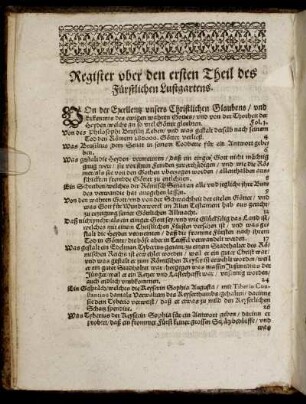 Register vber den ersten Theil des
Fürstlichen Lustgartens.
VOn der Excellentz vnsers Christlichen Glaubens / vnd
Erkentnus des ewigen wahren Gottes / vnd von der Thorheit der
Heyden welche an so viel Götter glauben. Fol. 1.
Von des Philosophi Bruxilij Leben / vnd was gestalt derselb nach seinem
Tod den Römern 28000. Götter verließ.
Was Bruxilius dem Senat in seinem Todbette für ein Antwort gebe
ben.
Was gestalt die Heyden vermeinten / daß ein einiger Gott nicht mächtig
gnug wer / sie vor ihren Feinden zubeschützen / vnd wie die Rö
mer als sie von den Gothen vberzogen worden / allenthalben vmb
frembde Götter zu entlehnen.
Ein Schreiben welches der Römisch Senat an alle
verwandte hat außgehen lassen.
Von den wahren Gott / vnd von der Schwachheit der eitelen Götter / vnd
was Gott für Wunderwerck im Alten Testament hab
zu erzeigung seiner Göttlichen Allmacht.
Daß nicht mehr als ein einiger Gott sey / vnd wie Glückselig das Land ist /
welches mit einem Christlichen Fürsten versehen ist / vnd was ge
stalt die Heyden vermeinten / daß die frommen Fürsten nach ihrem
Tod zu Götter / die bösen aber in Teuffel verwandelt werden.
Was gestalt ein Edelman Tyberius genant zu einem Stadthalter des Rö
mischen Reichs ist erwehlet worden / weil er ein guter Christ war /
vnd was gestalt er zum Römischen Keyser ist erwehlet worden / weil
er ein guter Stadhalter war / hergegen was massen Justinianus der
Jünger / weil er ein Ketzer vnd Lasterhafft war / vnsinnig worden /
auch endlich vmbkommen.
Ein Gespräch / welches die Keyserin Sophia Augusta / mit Tiberio Con-
stantino damals Verwaltern des Keyserthumbs gehalten / darinne
sie den Tyberio verweist / daß er etwas zu mild den Keyserlichen
Schatz spendire.
Was Tyberius der Keyserin Sophia für ein Antwort geben / darinn er
probirt / daß ein frommer Fürst keiner grossen Schätz bedürffe / vnd
was